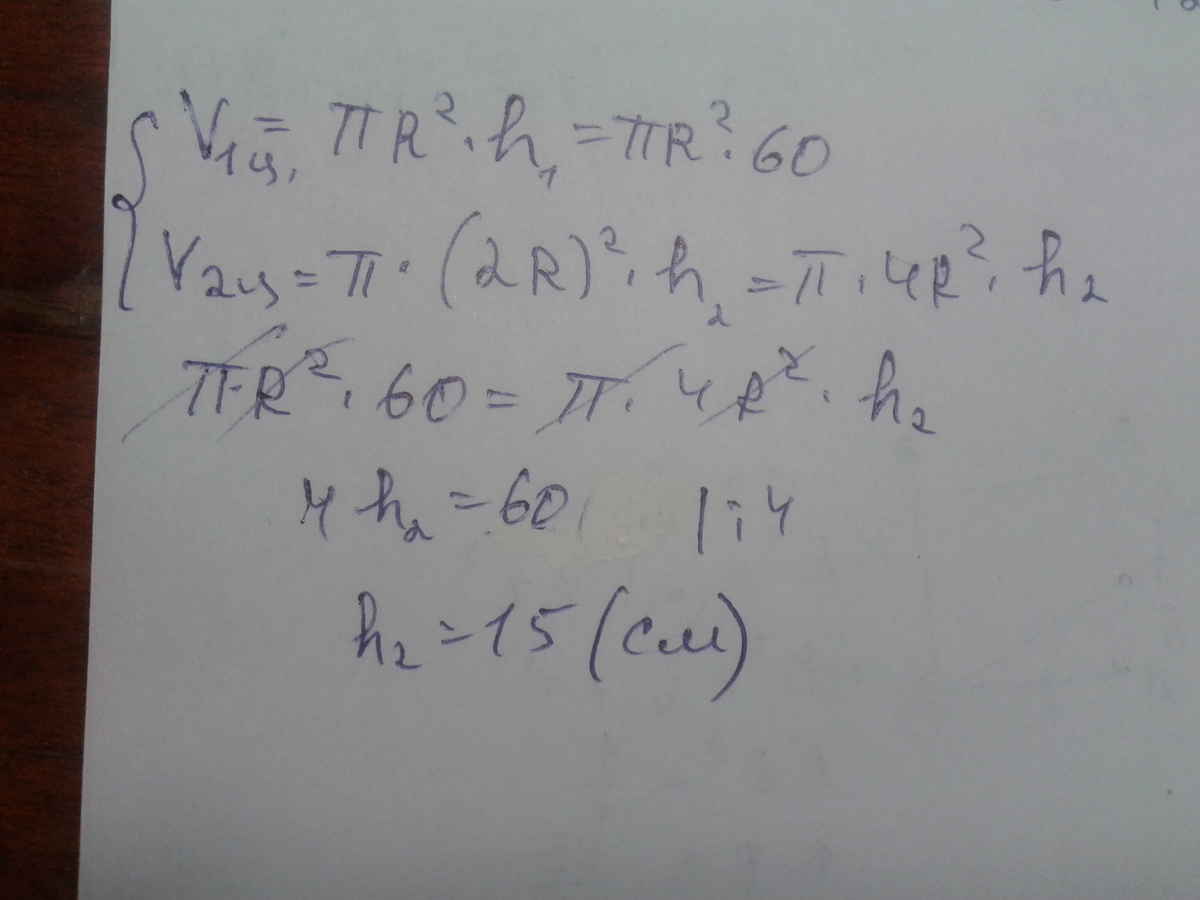 V₁ц. = πR²·h₁ = πR²·60
V₂ц = π·(2R)²·h₂ = π·4R²·h₂
π·R²·60 = π·4R²·h₂
4h₂ = 60 |:4
h₂ = 15 (см)